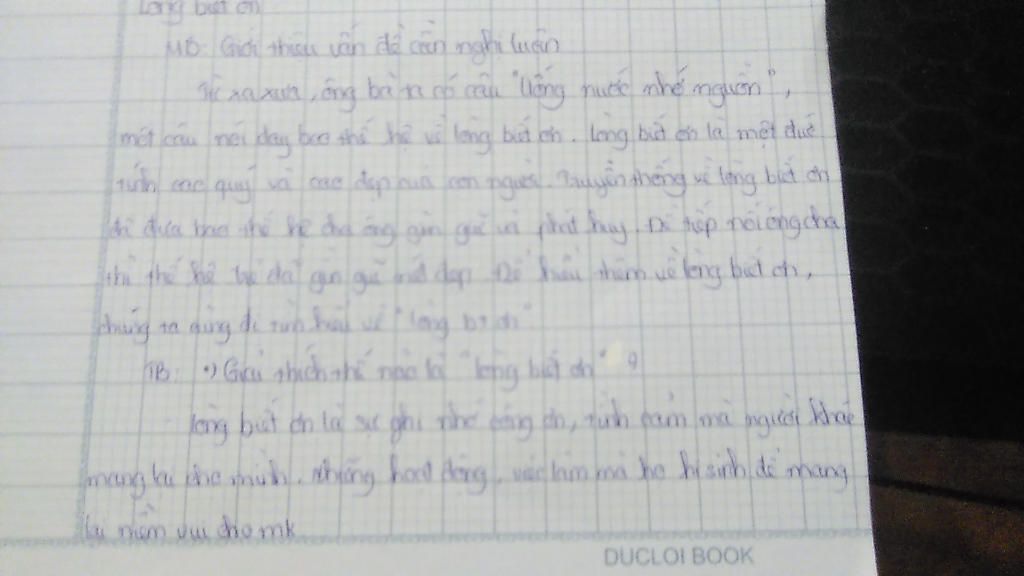 Lòng biết ơn
MB: Giới thiệu vấn đề cần nghị luận
Từ xa xưa, ông bà ta có câu "Uống nước nhớ nguồn",
một câu nói dạy bao thế hệ về lòng biết ơn. Lòng biết ơn là một đức
tính cao quý và cao đẹp của con người. Truyền thống về lòng biết ơn
đã đưa bao thế hệ cha ông gìn giữ và phát huy. Để tiếp nối ông cha
thì thế hệ trẻ đã gìn giữ nét đẹp. Để hiểu thêm về lòng biết ơn,
chúng ta cùng đi tìm hiểu về "lòng b ơn"
TB: •) Giải thích thế nào là "lòng biết ơn" ?
Lòng biết ơn là sự ghi nhớ công ơn, tình cảm mà người khác
mang lại cho mình. Những hoạt động, việc làm mà họ hi sinh để mang
lại niềm vui cho mk
DUCLOI BOOK